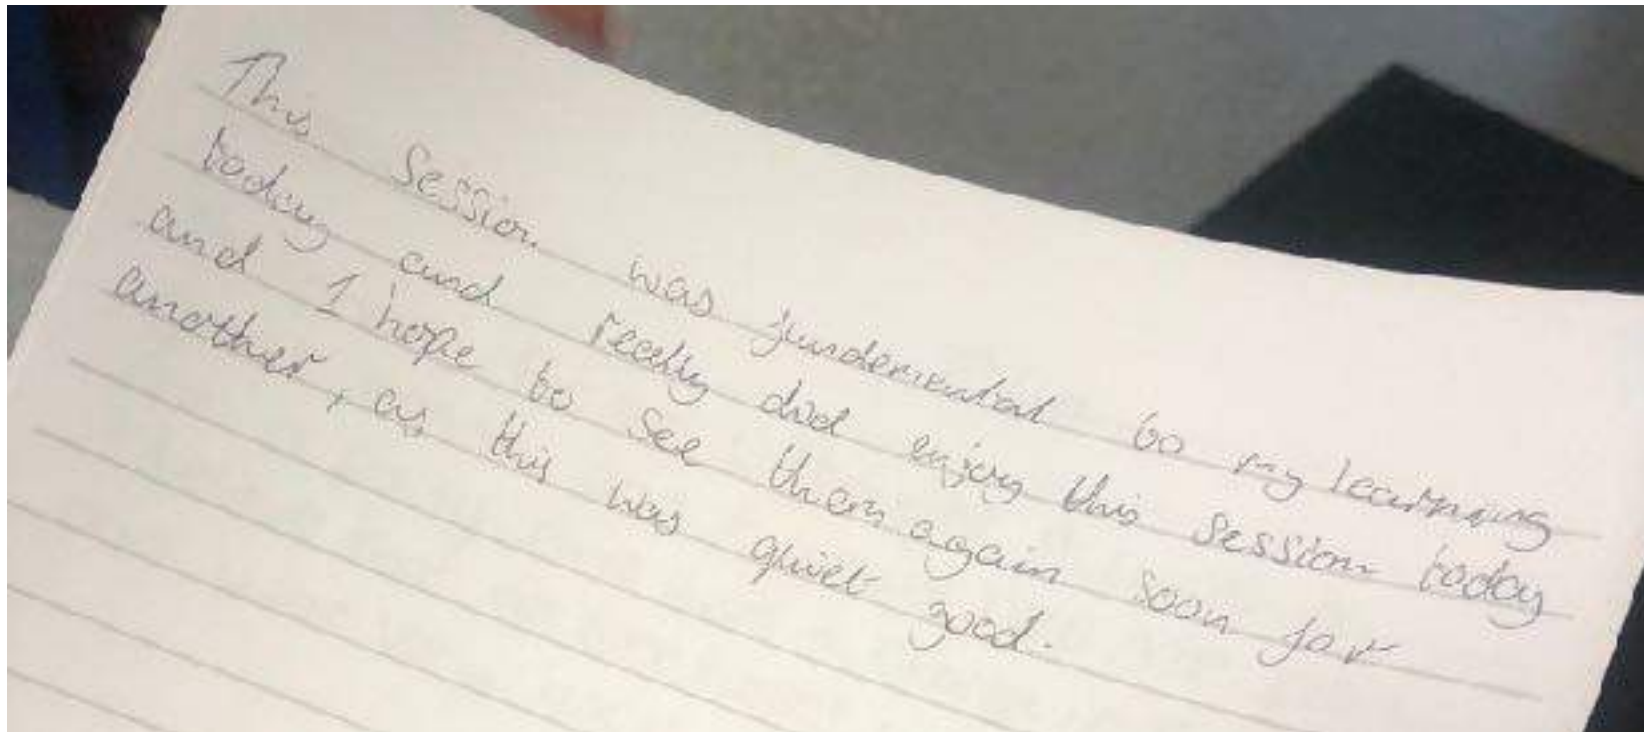 This Session was fundemental to my learning
today and really did enjoy this session today
and I hope to see them again soon for
another, as this was quiet good.